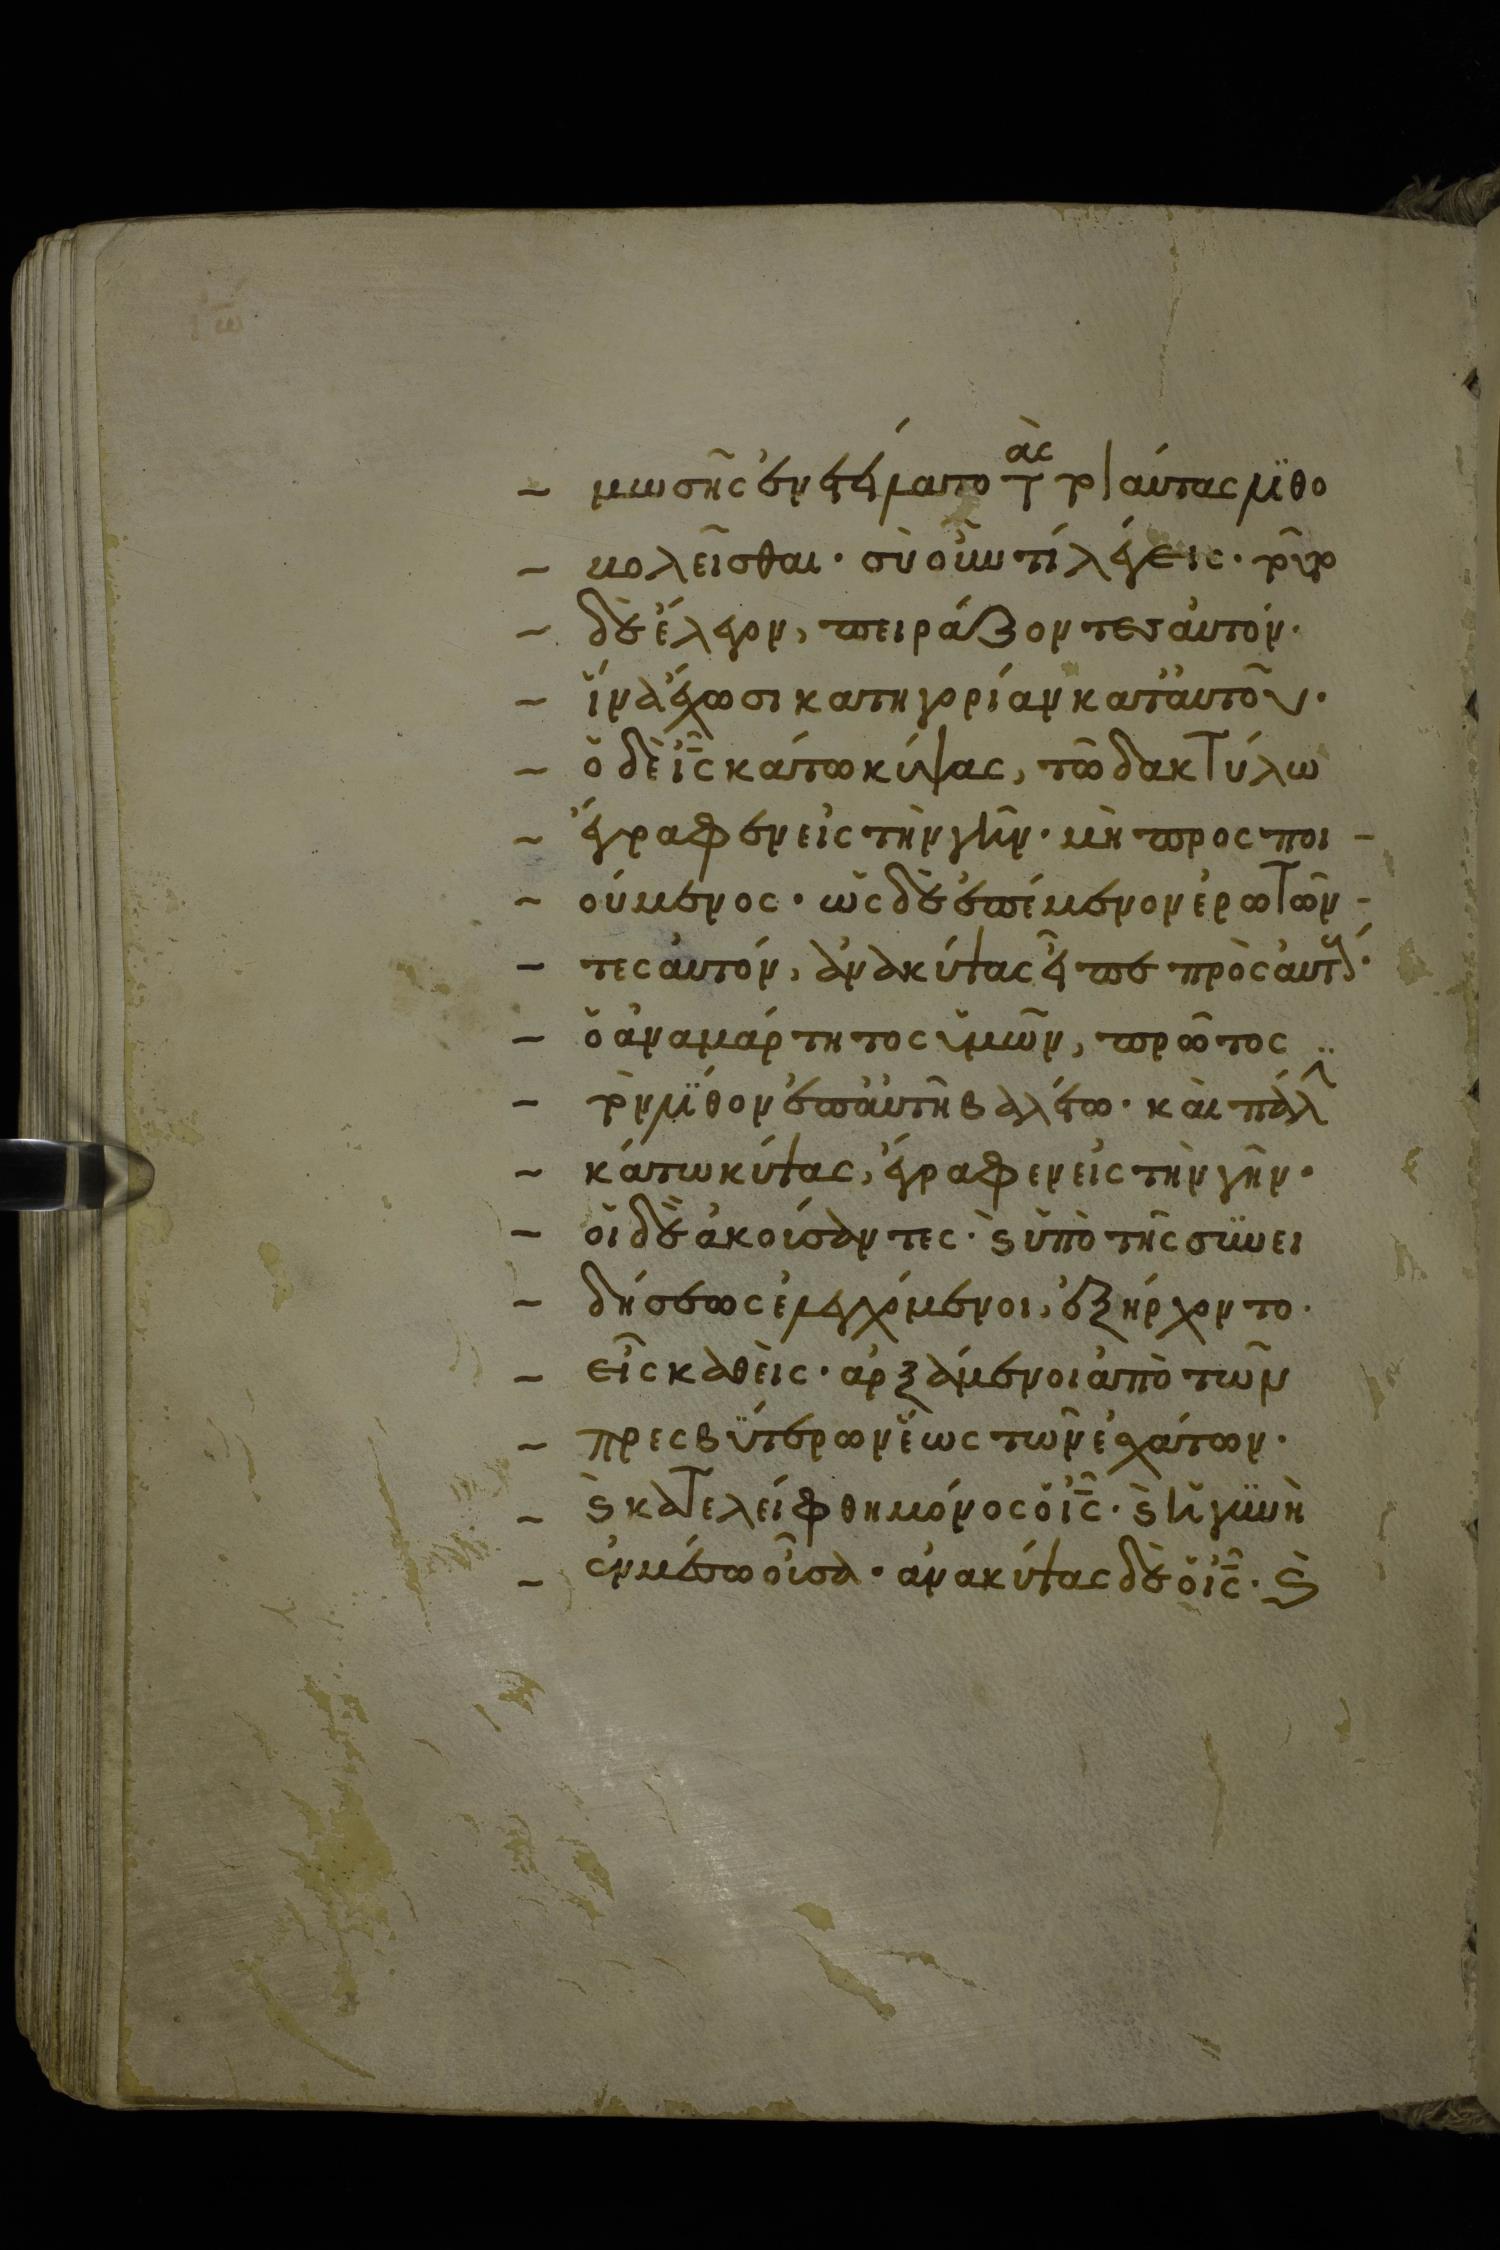 – μωσῆς ἐνετείλατο τὰς τοιαύτας λϊθο
– βολεῖσθαι· σὺ οὖν τί λέγεις· τοῦτο
– δὲ ἔλεγον, πειράζοντες αὐτόν·
– ἵνα ἔχωσι κατηγορίαν κατ' αὐτοῦ·
– ὁ δὲ ι̅ς̅ κάτω κύψας, τῶ δακτύλω
– ἔγραφεν εἰς τὴν γῆν· μὴ προσποι –
– ούμενος· ὡς δὲ ἐπέμενον ἐρωτῶν –
– τες αὐτόν, ἀνακύψας εἶπε πρὸς αὐτούς·
– ὁ ἀναμάρτητος ὑμῶν, πρῶτος
– τὸν λϊθον ἐπ' αὐτῆ βαλέτω· καὶ πάλϊ
– κάτω κύψας, ἔγραφεν εἰς τὴν γῆν·
– οἱ δὲ ἀκούσαντες· ϗ ὑπὸ τῆς συνει
– δήσεως ἐλεγχόμενοι, ἐξήρχοντο·
– εἷς καθεὶς· ἀρξάμενοι ἀπὸ τῶν
– πρεσβϋτέρων ἕως τῶν ἐσχάτων·
– ϗ κατελείφθη μόνος ὁ ι̅ς̅· ϗ ἡ γϋνὴ
– ἐν μέσω οὖσα· ἀνακύψας δὲ ὁ ι̅ς̅· ϗ